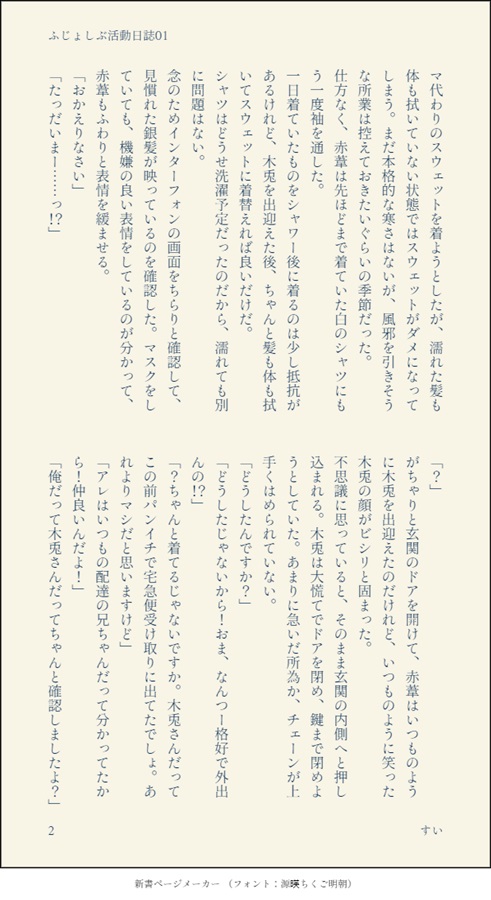 ふじょしぶ活動日誌01
マ代わりのスウェットを着ようとしたが、濡れた髪も
体も拭いていない状態ではスウェットがダメになって
しまう。まだ本格的な寒さはないが、風邪を引きそう
な所業は控えておきたいぐらいの季節だった。
仕方なく、赤葦は先ほどまで着ていた白のシャツにも
う一度袖を通した。
一日着ていたものをシャワー後に着るのは少し抵抗が
あるけれど、木兎を出迎えた後、ちゃんと髪も体も拭
いてスウェットに着替えれば良いだけだ。
シャツはどうせ洗濯予定だったのだから、濡れても別
に問題はない。
念のためインターフォンの画面をちらりと確認して、
見慣れた銀髪が映っているのを確認した。マスクをし
ていても、機嫌の良い表情をしているのが分かって、
赤葦もふわりと表情を緩ませる。
「おかえりなさい」
「たっだいまー……っ!?」
「？」
がちゃりと玄関のドアを開けて、赤葦はいつものよう
に木兎を出迎えたのだけれど、いつものように笑った
木兎の顔がビシリと固まった。
不思議に思っていると、そのまま玄関の内側へと押し
込まれる。木兎は大慌てでドアを閉め、鍵まで閉めよ
うとしていた。あまりに急いだ所為か、チェーンが上
手くはめられていない。
「どうしたんですか？」
「どうしたじゃないから！おま、なんつー格好で外出
んの!?」
「？ちゃんと着てるじゃないですか。木兎さんだって
この前パンイチで宅急便受け取りに出てたでしょ。あ
れよりマシだと思いますけど」
「アレはいつもの配達の兄ちゃんだって分かってたか
ら！仲良いんだよ！」
「俺だって木兎さんだってちゃんと確認しましたよ？」
2
すい
新書ページメーカー （フォント：源暎ちくご明朝）